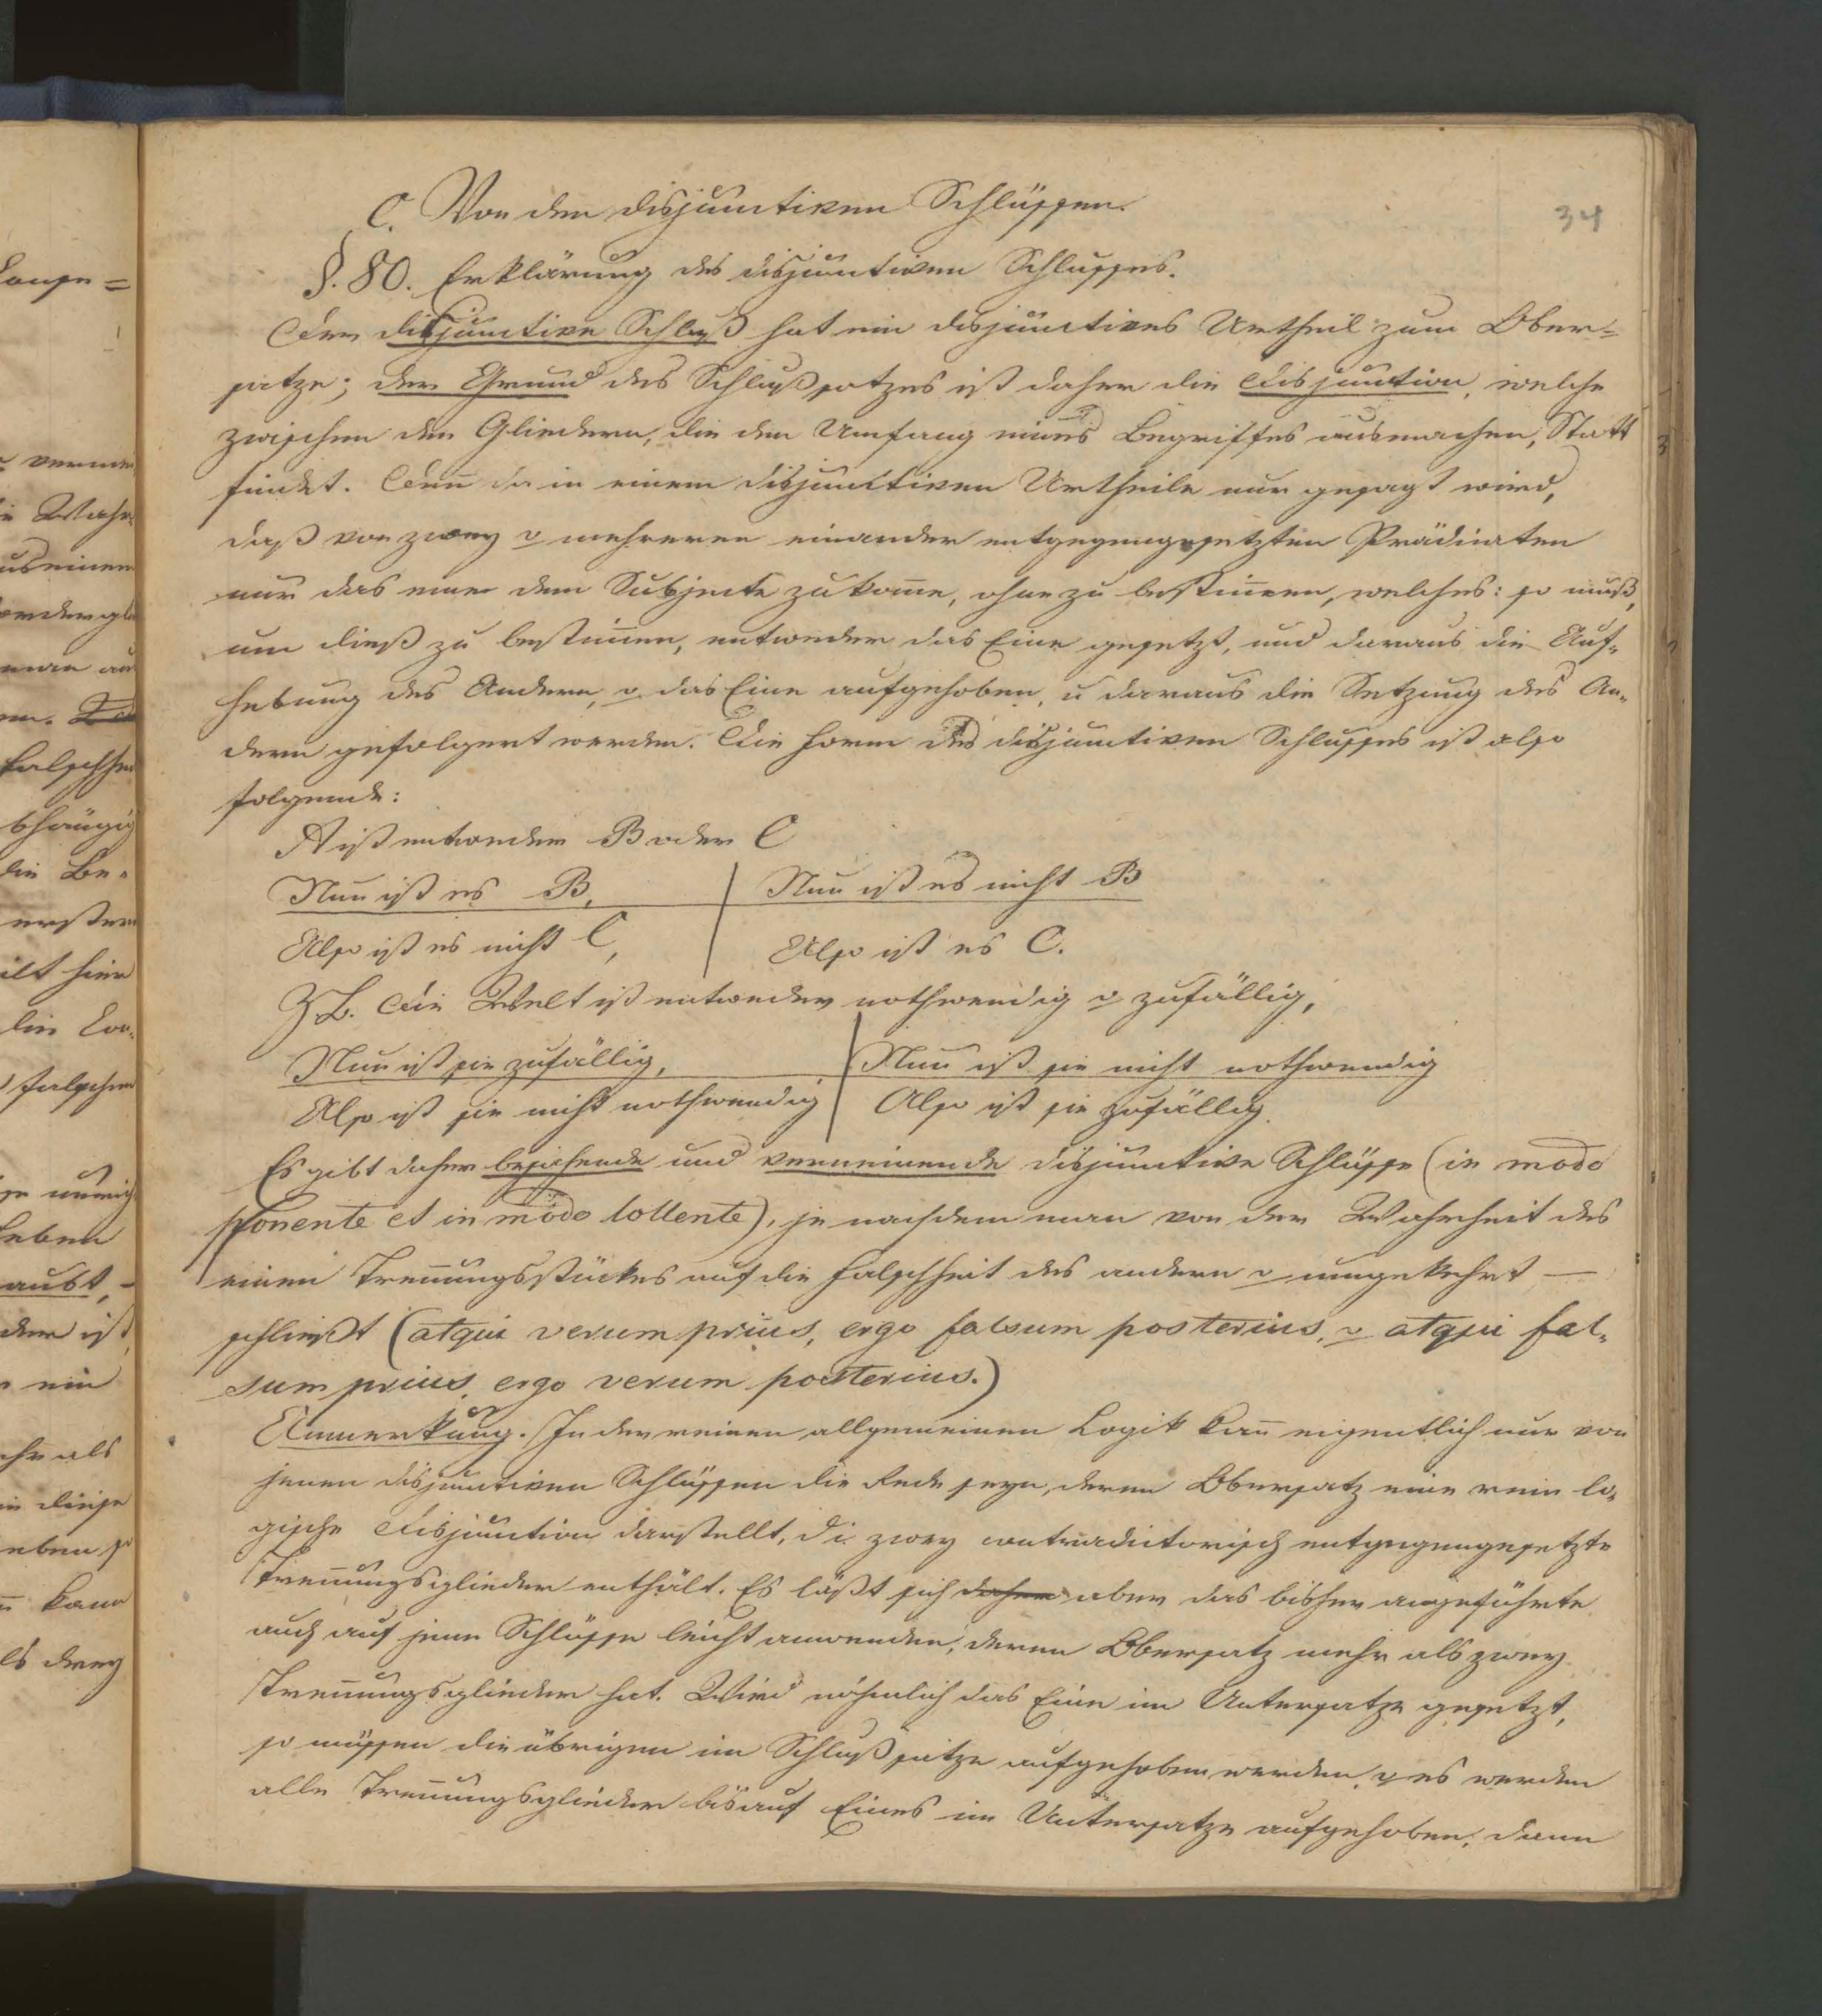 34
C. Von den disjunctiven Schlüssen.
§. 80. Erklärung des disjunctiven Schlusses.
Der disjunctive Schluß hat ein disjunctives Urtheil zum Ober=
satze; der Grund des Schlußsatzes ist daher die Disjunction, welche
zwischen den Gliedern, die den Umfang eines Begriffes ausmachen, Statt
findet. Deñ da in einem disjunctiven Urtheile nur gesagt wird,
daß von zwey o mehreren einander entgegengesetzten Prädicaten
nur das eine dem Subjecte zukom̄e, ohne zu bestim̄en, welches: so muß,
um dieß zu bestim̄en, entweder das Eine gesetzt, und daraus die Auf-
hebung des Andern, o das Eine aufgehoben, u daraus die Setzung des An-
dern gefolgert werden. Die Form des disjunctiven Schlusses ist also
folgende:
A ist entweder B oder C
Nun ist es B, | Nun ist es nicht B
Also ist es nicht C, | Also ist es C.
Z.B. Die Welt ist entweder nothwendig o zufällig,
Nun ist sie zufällig, | Nun ist sie nicht nothwendig
Also ist sie nicht nothwendig | Also ist sie zufällig.
Es gibt daher bejahende und verneinende disjunctive Schlüsse (in modo
ponente et in modo tollente), je nachdem man von der Wahrheit des
einen Treñungsstückes auf die Falschheit des andern o umgekehrt —
schließt (atqui verum prius, ergo falsum posterius, o atqui fal-
sum prius, ergo verum posterius.)
Anmerkung. In der reinen allgemeinen Logik kañ eigentlich nur von
jenen disjunctiven Schlüssen die Rede seyn, deren Obersatz eine rein lo-
gische Disjunction darstellt, d.i. zwey contradictorisch entgegengesetzte
Treñungsglieder enthält. Es läßt sich daher aber das bisher angeführte
auch auf jene Schlüsse leicht anwenden, deren Obersatz mehr als zwey
Treñungsglieder hat. Wird nähmlich das Eine im Untersatze gesetzt,
so müssen die übrigen im Schlußsatze aufgehoben werden, o es werden
alle Treñungsglieder bis auf Eines im Untersatze aufgehoben, dann